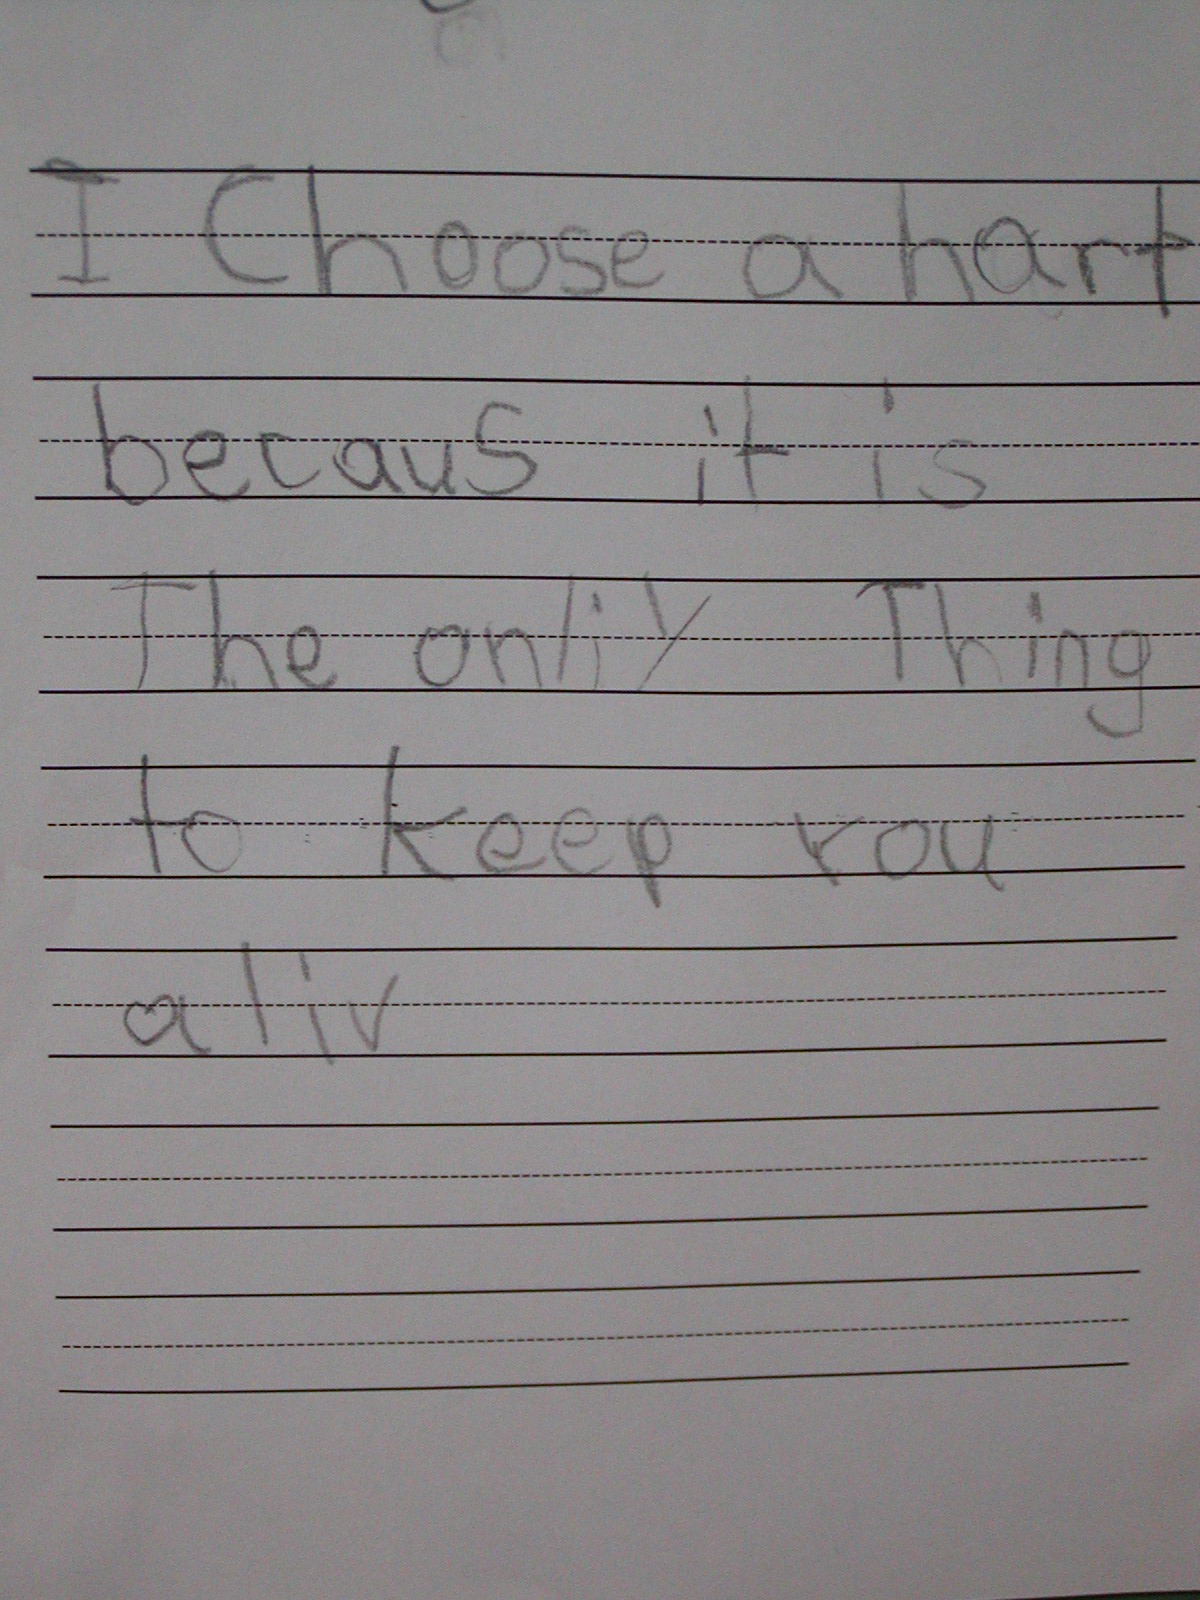 I Choose a hart
becaus it is
The onliy Thing
to keep you
aliv